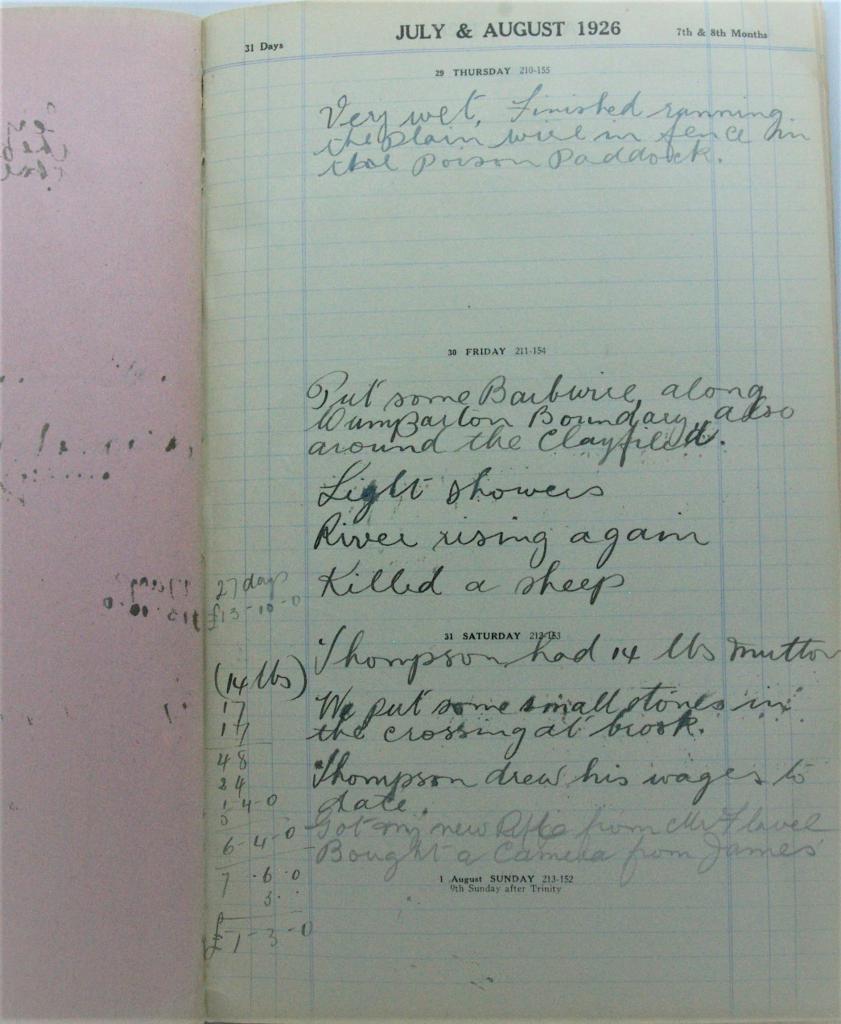 JULY & AUGUST 1926
31 Days
7th & 8th Months
29 THURSDAY 210-155
Very wet, Finished running
the plain wire in fence in
the Poison Paddock.
30 FRIDAY 211-154
Put some Barbwire along
Boundary, also
around the Clayfield.
Light showers
River rising again
Killed a sheep
27 days
£13-10-0
31 SATURDAY 212-153
Thompson had 14 lbs mutton
(14 lbs)
We put some small stones in
17
the crossing at brook.
17
48
Thompson drew his wages to
24
date.
1 4-0
5
Got my new Rifle from Mr Flavel
6-4-0
Bought a Camera from James
7 . 6 . 0
3
1 August SUNDAY 213-152
9th Sunday after Trinity
£7-3-0